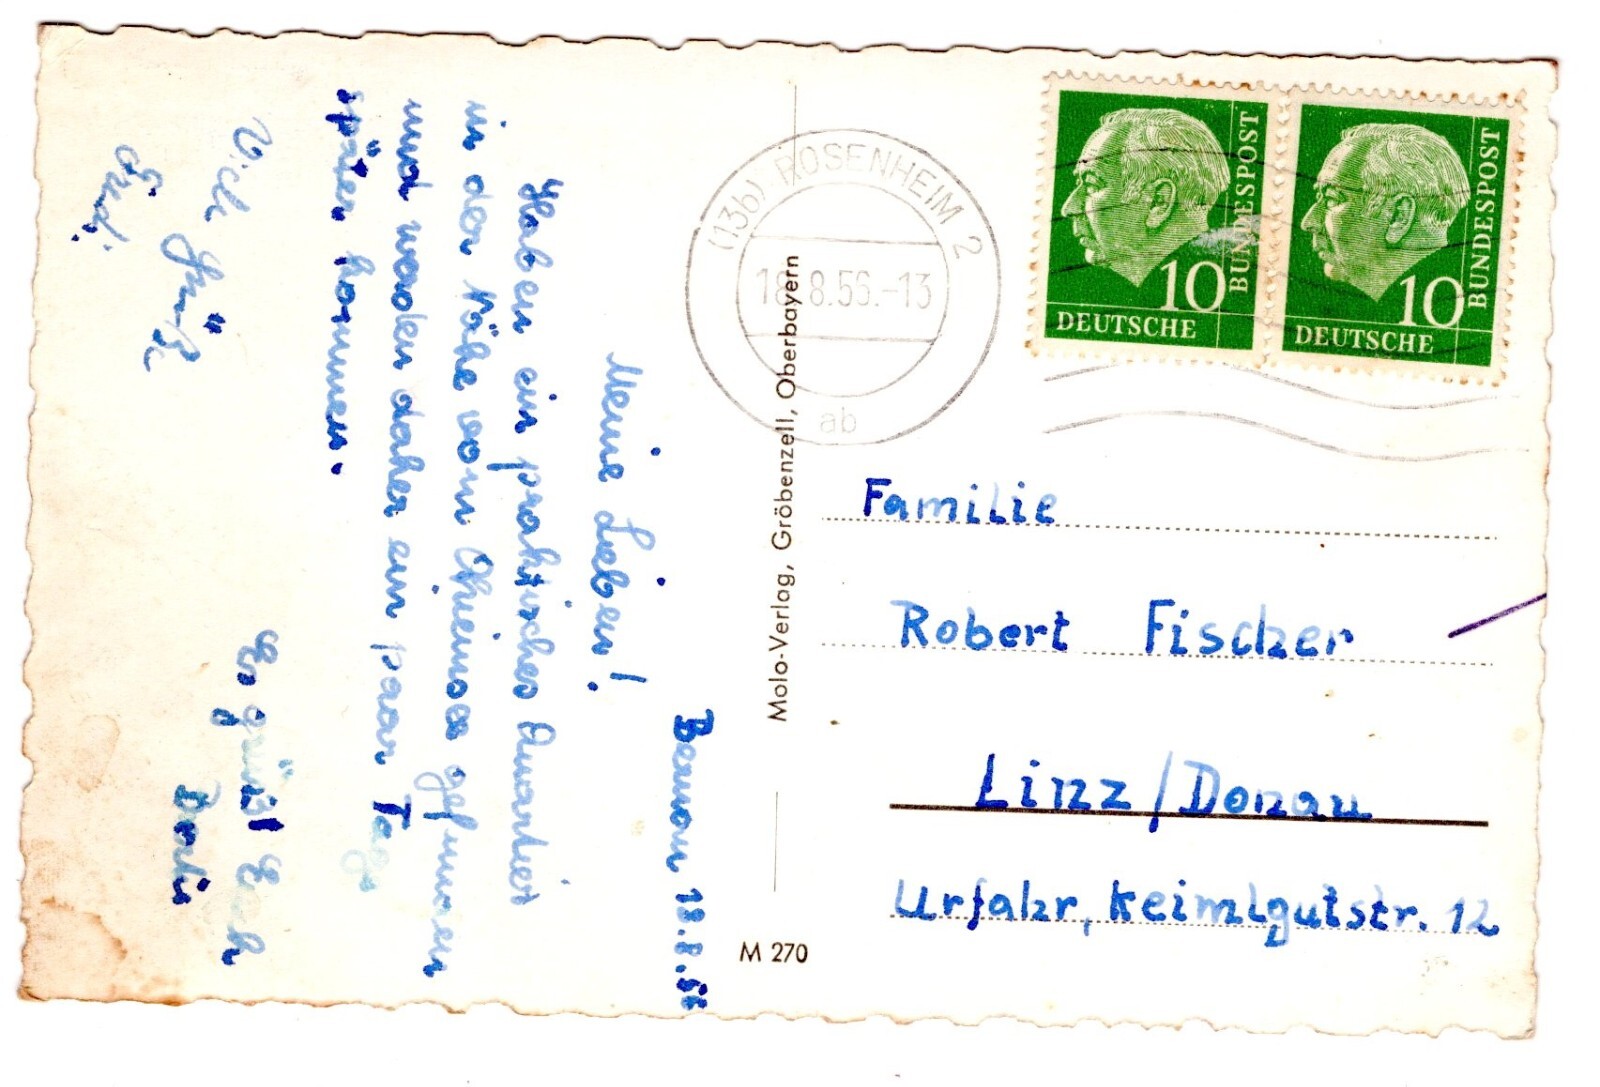 Bernau, 18.8.56
Meine Lieben!
Haben ein praktisches Quartier
in der Nähe vom Chiemsee gefunden
und werden daher ein paar Tage
später kommen.
Es grüßt Euch
Viele Grüße
(13b) ROSENHEIM 2
18.8.56.-13
ab
DEUTSCHE BUNDESPOST 10
DEUTSCHE BUNDESPOST 10
Molo-Verlag, Gröbenzell, Oberbayern
M 270
Familie
Robert Fischer
Linz/Donau
Urfahr, Keimlgutstr. 12